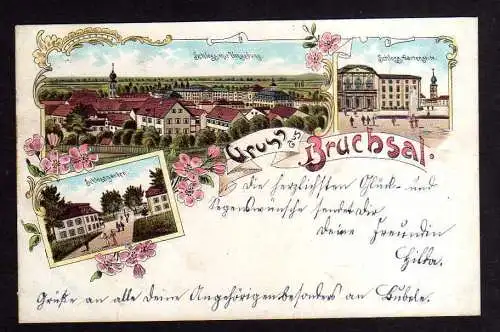 Schloss mit Umgebung.
Schloss-Gartenseite.
Gruss aus
Bruchsal.
Schlossgarten
Die herzlichsten Glück- und
Segenswünsche sendet Dir
Deine Freundin
Hilda.
Grüße an alle Deine Angehörigen besonders an